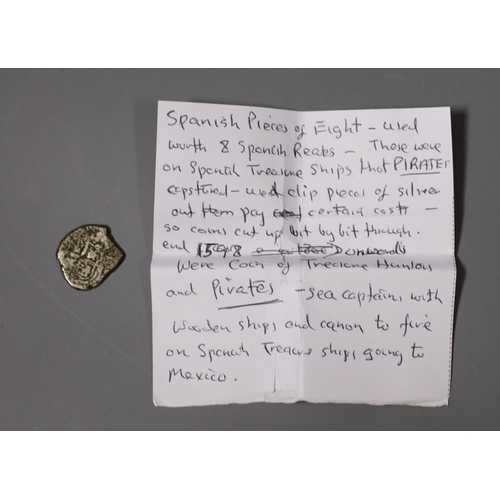 Spanish Pieces of Eight – used
worth 8 Spanish Reals – These were
on Spanish Treasure Ships that PIRATES
captured – used clip pieces of silver
out them pay certain costs –
so coins cut up bit by bit through.
end 1598 onwards
Were Coin of Treasure Hunters
and Pirates – sea captains with
wooden ships and canon to fire
on Spanish Treasure ships going to
Mexico.